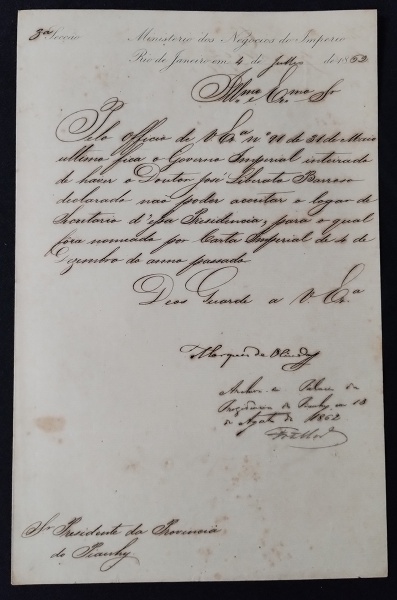 3ª Secção Ministerio dos Negocios do Imperio
Rio de Janeiro em 4 de Julho de 1862
Illmo e Exmo Sr
Pelo officio de V Exª nº 20 de 31 de Maio
ultimo fica o Governo Imperial inteirado
de haver o Doutor José Liberato Barroso
declarado não poder aceitar o logar de
Secretario d'essa Presidencia, para o qual
fora nomeado por Carta Imperial de 4 de
Dezembro do anno passado
Deos Guarde a V Exª
Marquez de Olinda
Palacio da
Presidencia do Piauhy em 13
de Agosto de 1862
Sr Presidente da Provincia
do Piauhy